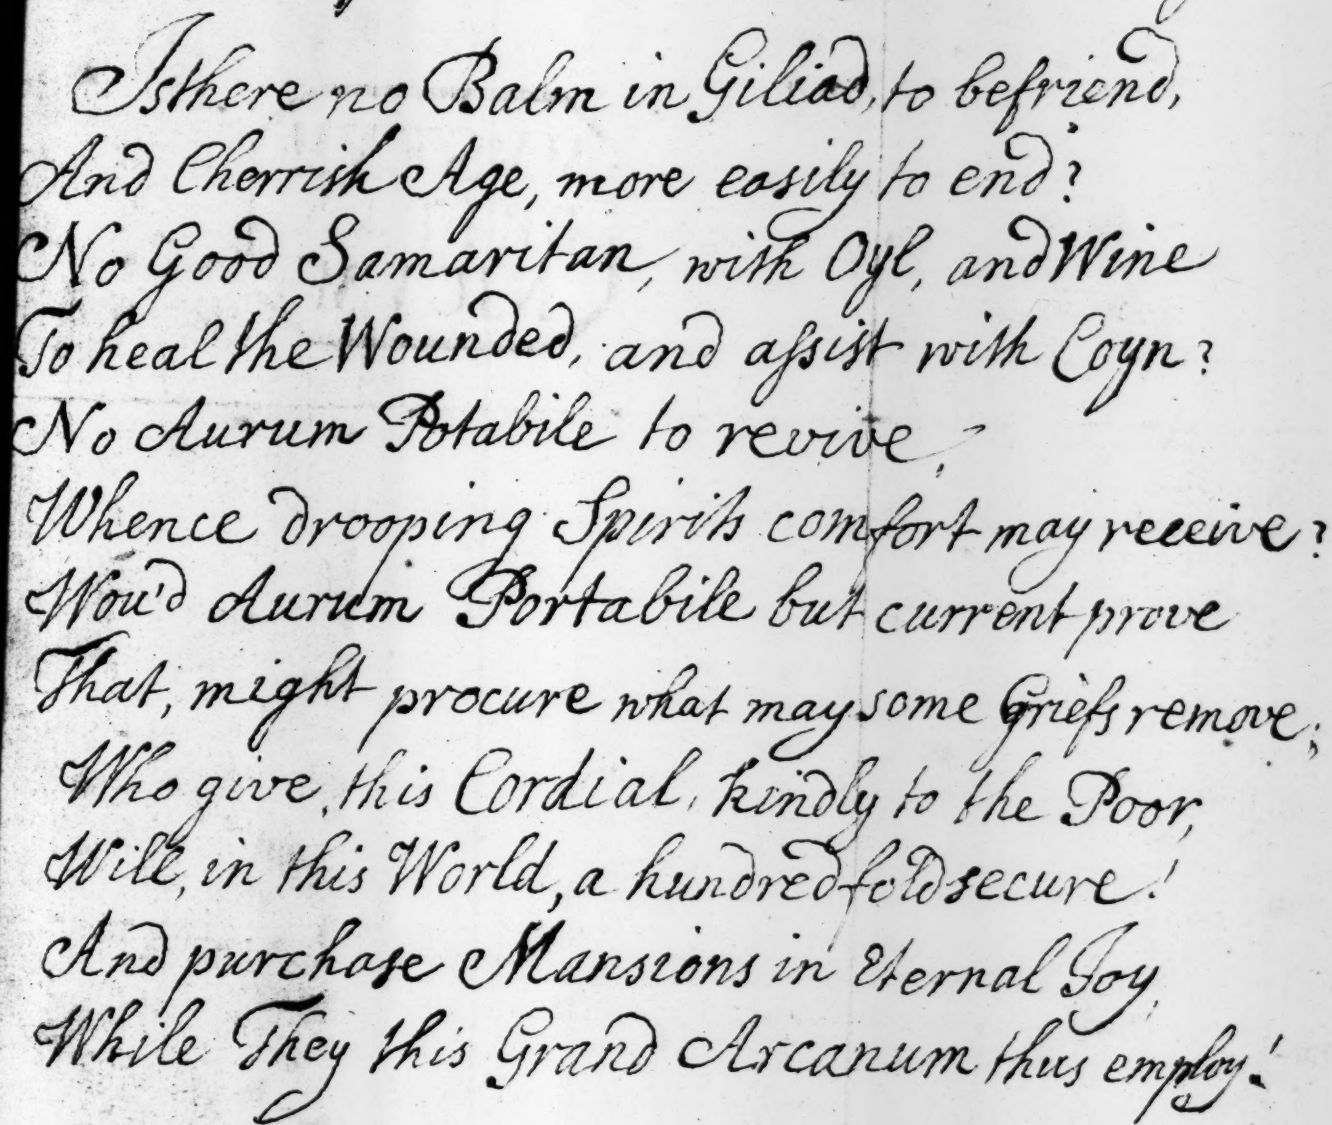 Is there no Balm in Giliad, to befriend,
And Cherrish Age, more easily to end?
No Good Samaritan, with Oyl, and Wine
To heal the Wounded, and assist with Coyn?
No Aurum Potabile to revive,
Whence drooping Spirits comfort may receive?
Wou'd Aurum Portabile but current prove
That, might procure what may some Griefs remove;
Who give, this Cordial, kindly to the Poor,
Will, in this World, a hundred fold secure!
And purchase Mansions in Eternal Joy,
While They this Grand Arcanum thus employ!